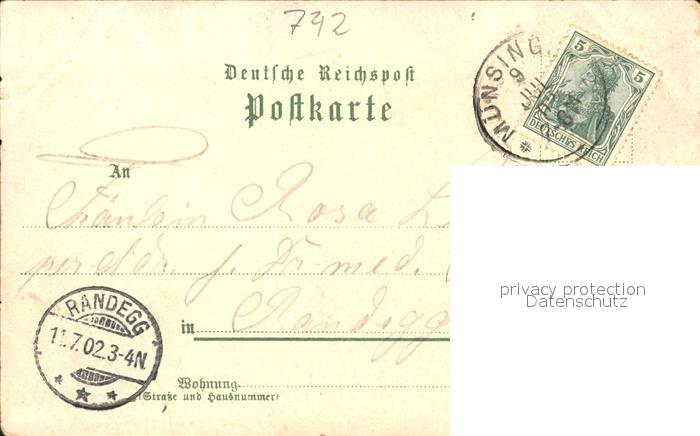 792
Deutsche Reichspost
Postkarte
MÜNSING
9 JUL
5 5
DEUTSCHES REICH
An
Fräulein Rosa L
per adr. J. Dr. med.
in Randegg
RANDEGG
11.7.02.3-4N.
Wohnung
(Straße und Hausnummer)
privacy protection
Datenschutz